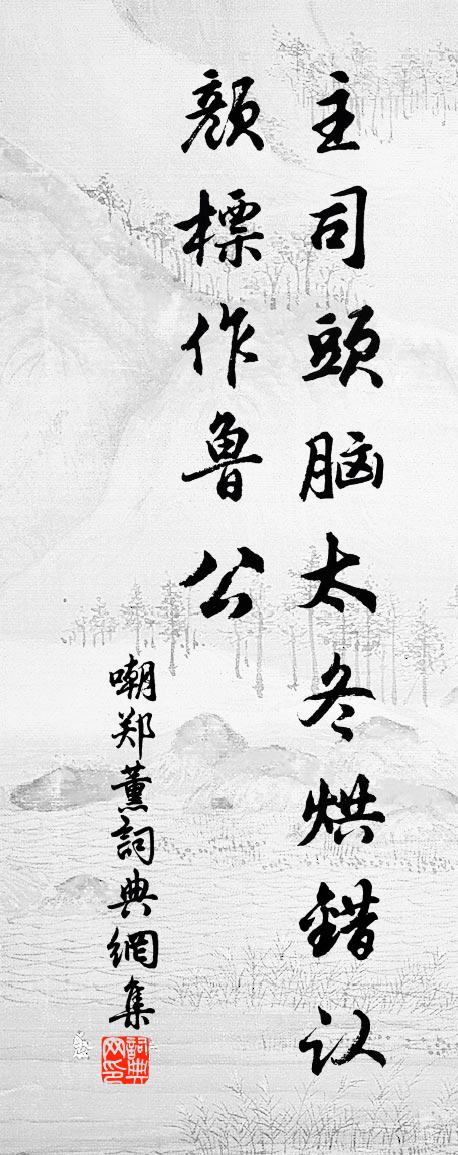 主司頭脑太冬烘錯认
顔標作鲁公
嘲郑薰詞典網集